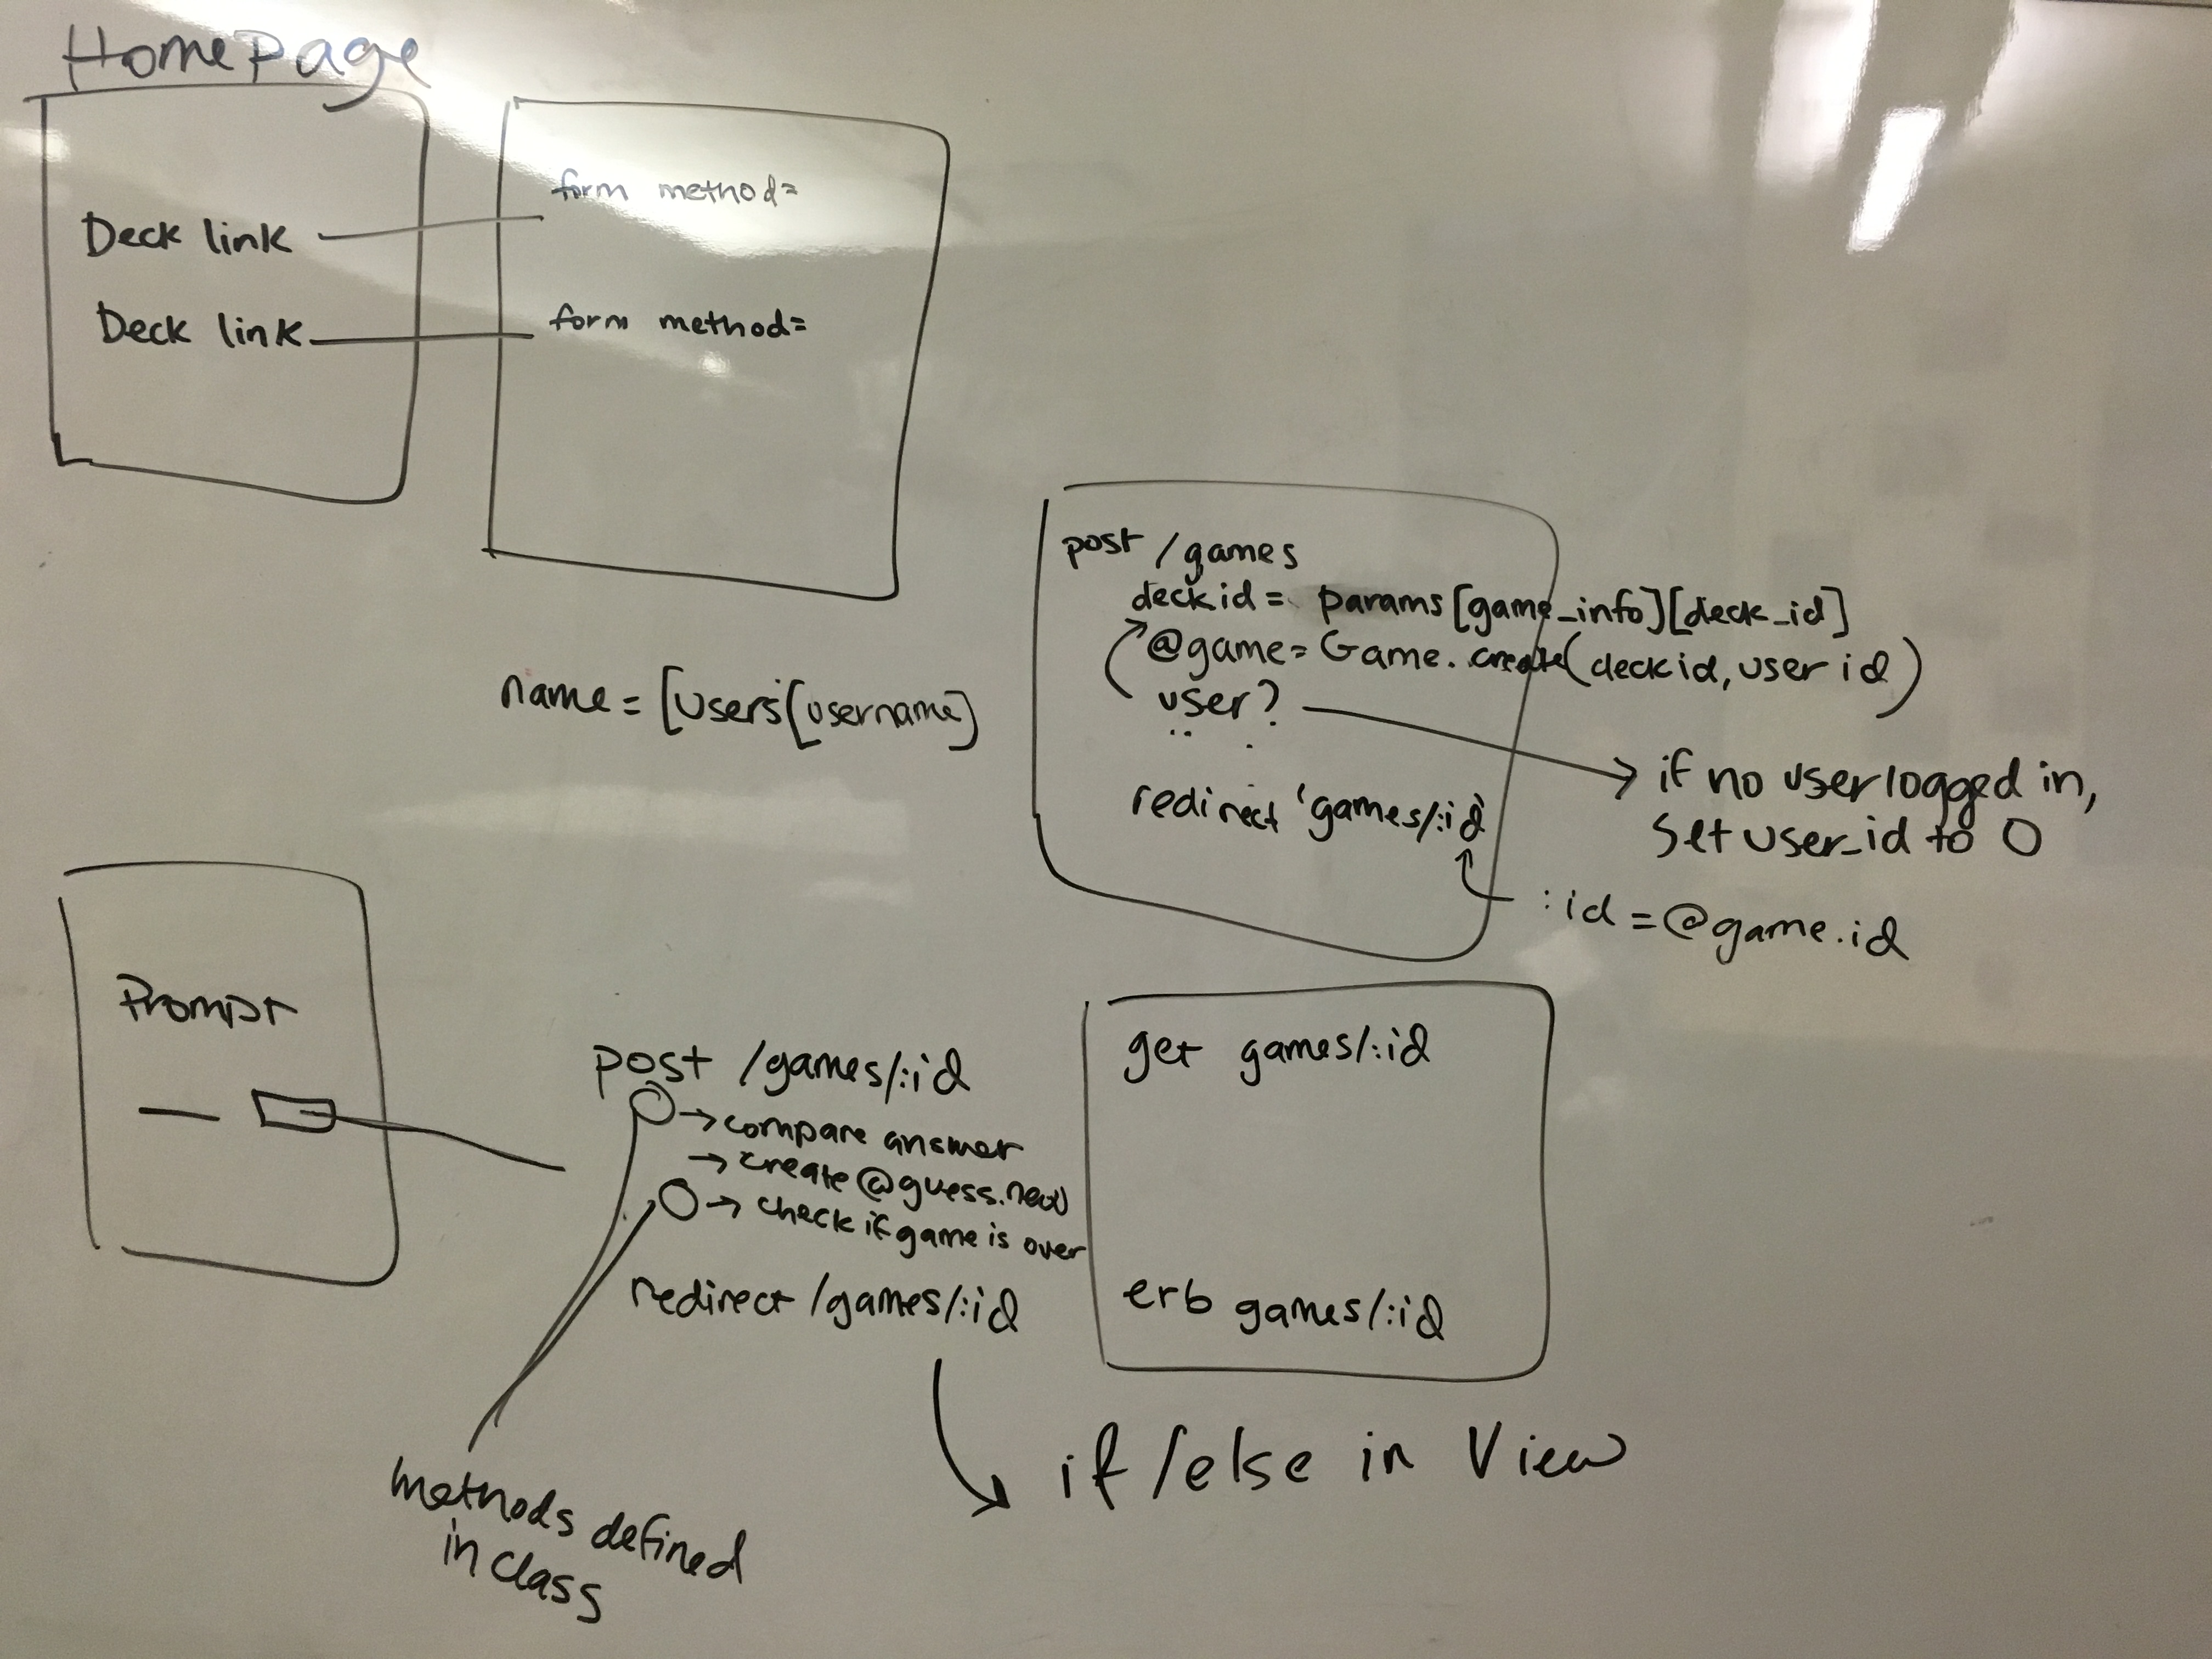 HomePage
Deck link
Deck link
form method=
form method=
name = [users[username]
post /games
deck id = params[game_info][deck_id]
@game = Game.create(deck id, user id)
user?
redirect 'games/:id'
if no user logged in,
set user_id to 0
:id = @game.id
Prompt
post /games/:id
→ compare answer
→ create @guess.new
→ check if game is over
redirect /games/:id
methods defined
in class
get games/:id
erb games/:id
if /else in View